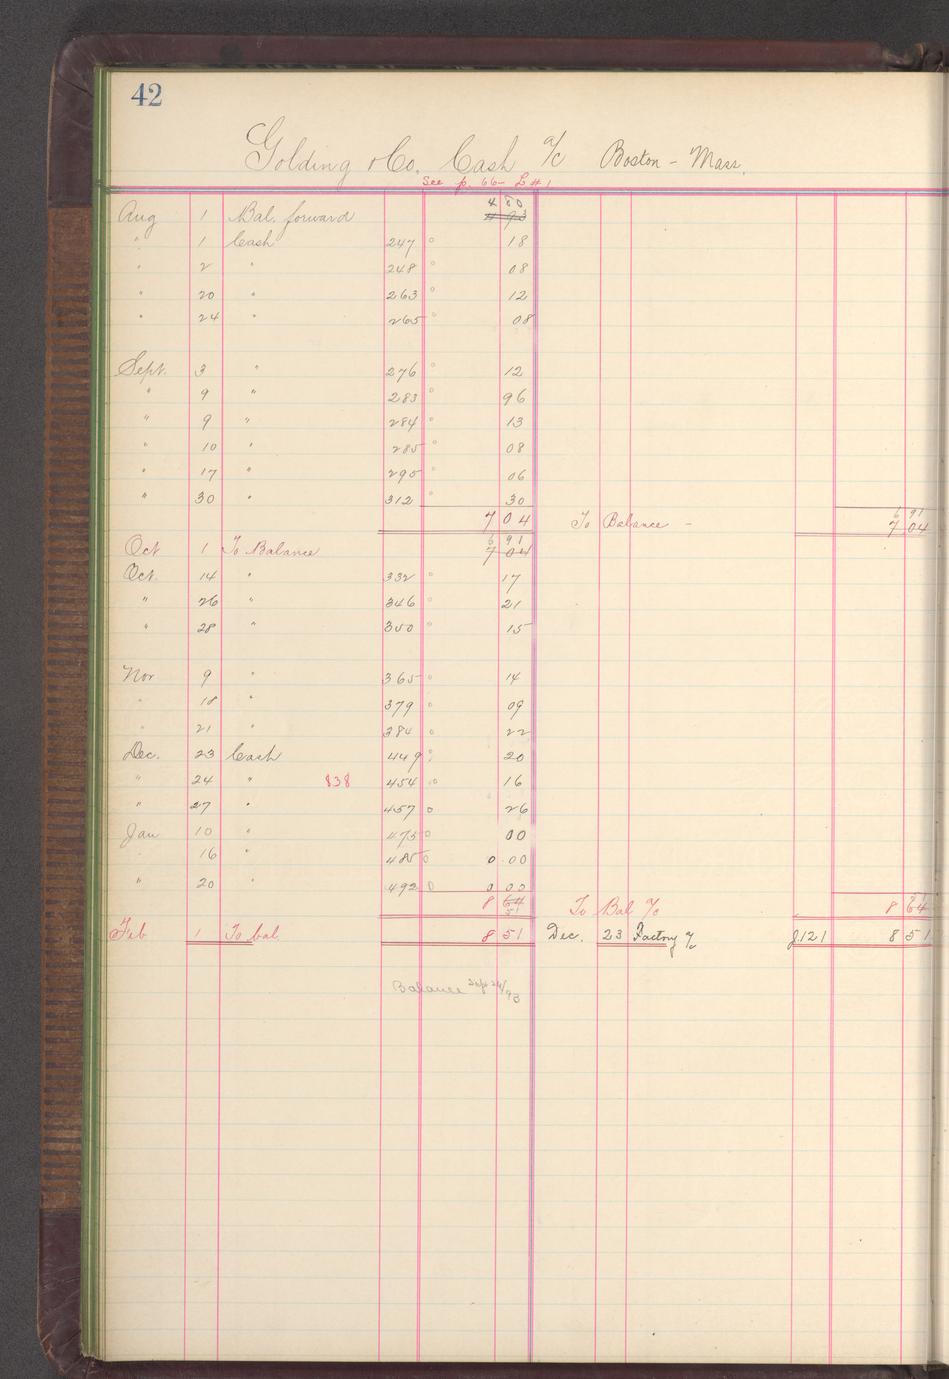 42
Golding & Co. Cash a/c Boston - Mass.
See p. 66- L#1
4 80
Aug 1 Bal. forward 4 93
" 1 Cash 247 18
" 2 " 248 08
" 20 " 263 12
" 24 " 265 08
Sept. 3 " 276 12
" 9 " 283 96
" 9 " 284 13
" 10 " 285 08
" 17 " 295 06
" 30 " 312 30
6 91
7 04 To Balance - 7 04
6 91
Oct 1 To Balance 7 04
Oct. 14 " 332 17
" 26 " 346 21
" 28 " 350 15
Nov 9 " 365 14
" 18 " 379 09
" 21 " 384 22
Dec. 23 Cash 449 20
" 24 " 838 454 16
" 27 " 457 26
Jan 10 " 475 00
16 " 485 0 00
" 20 " 492 0 00
8 64 To Bal a/c 8 64
51
Feb 1 To bal 8 51 Dec. 23 Factory a/c J.121 8 51
Balance Sept 24/93